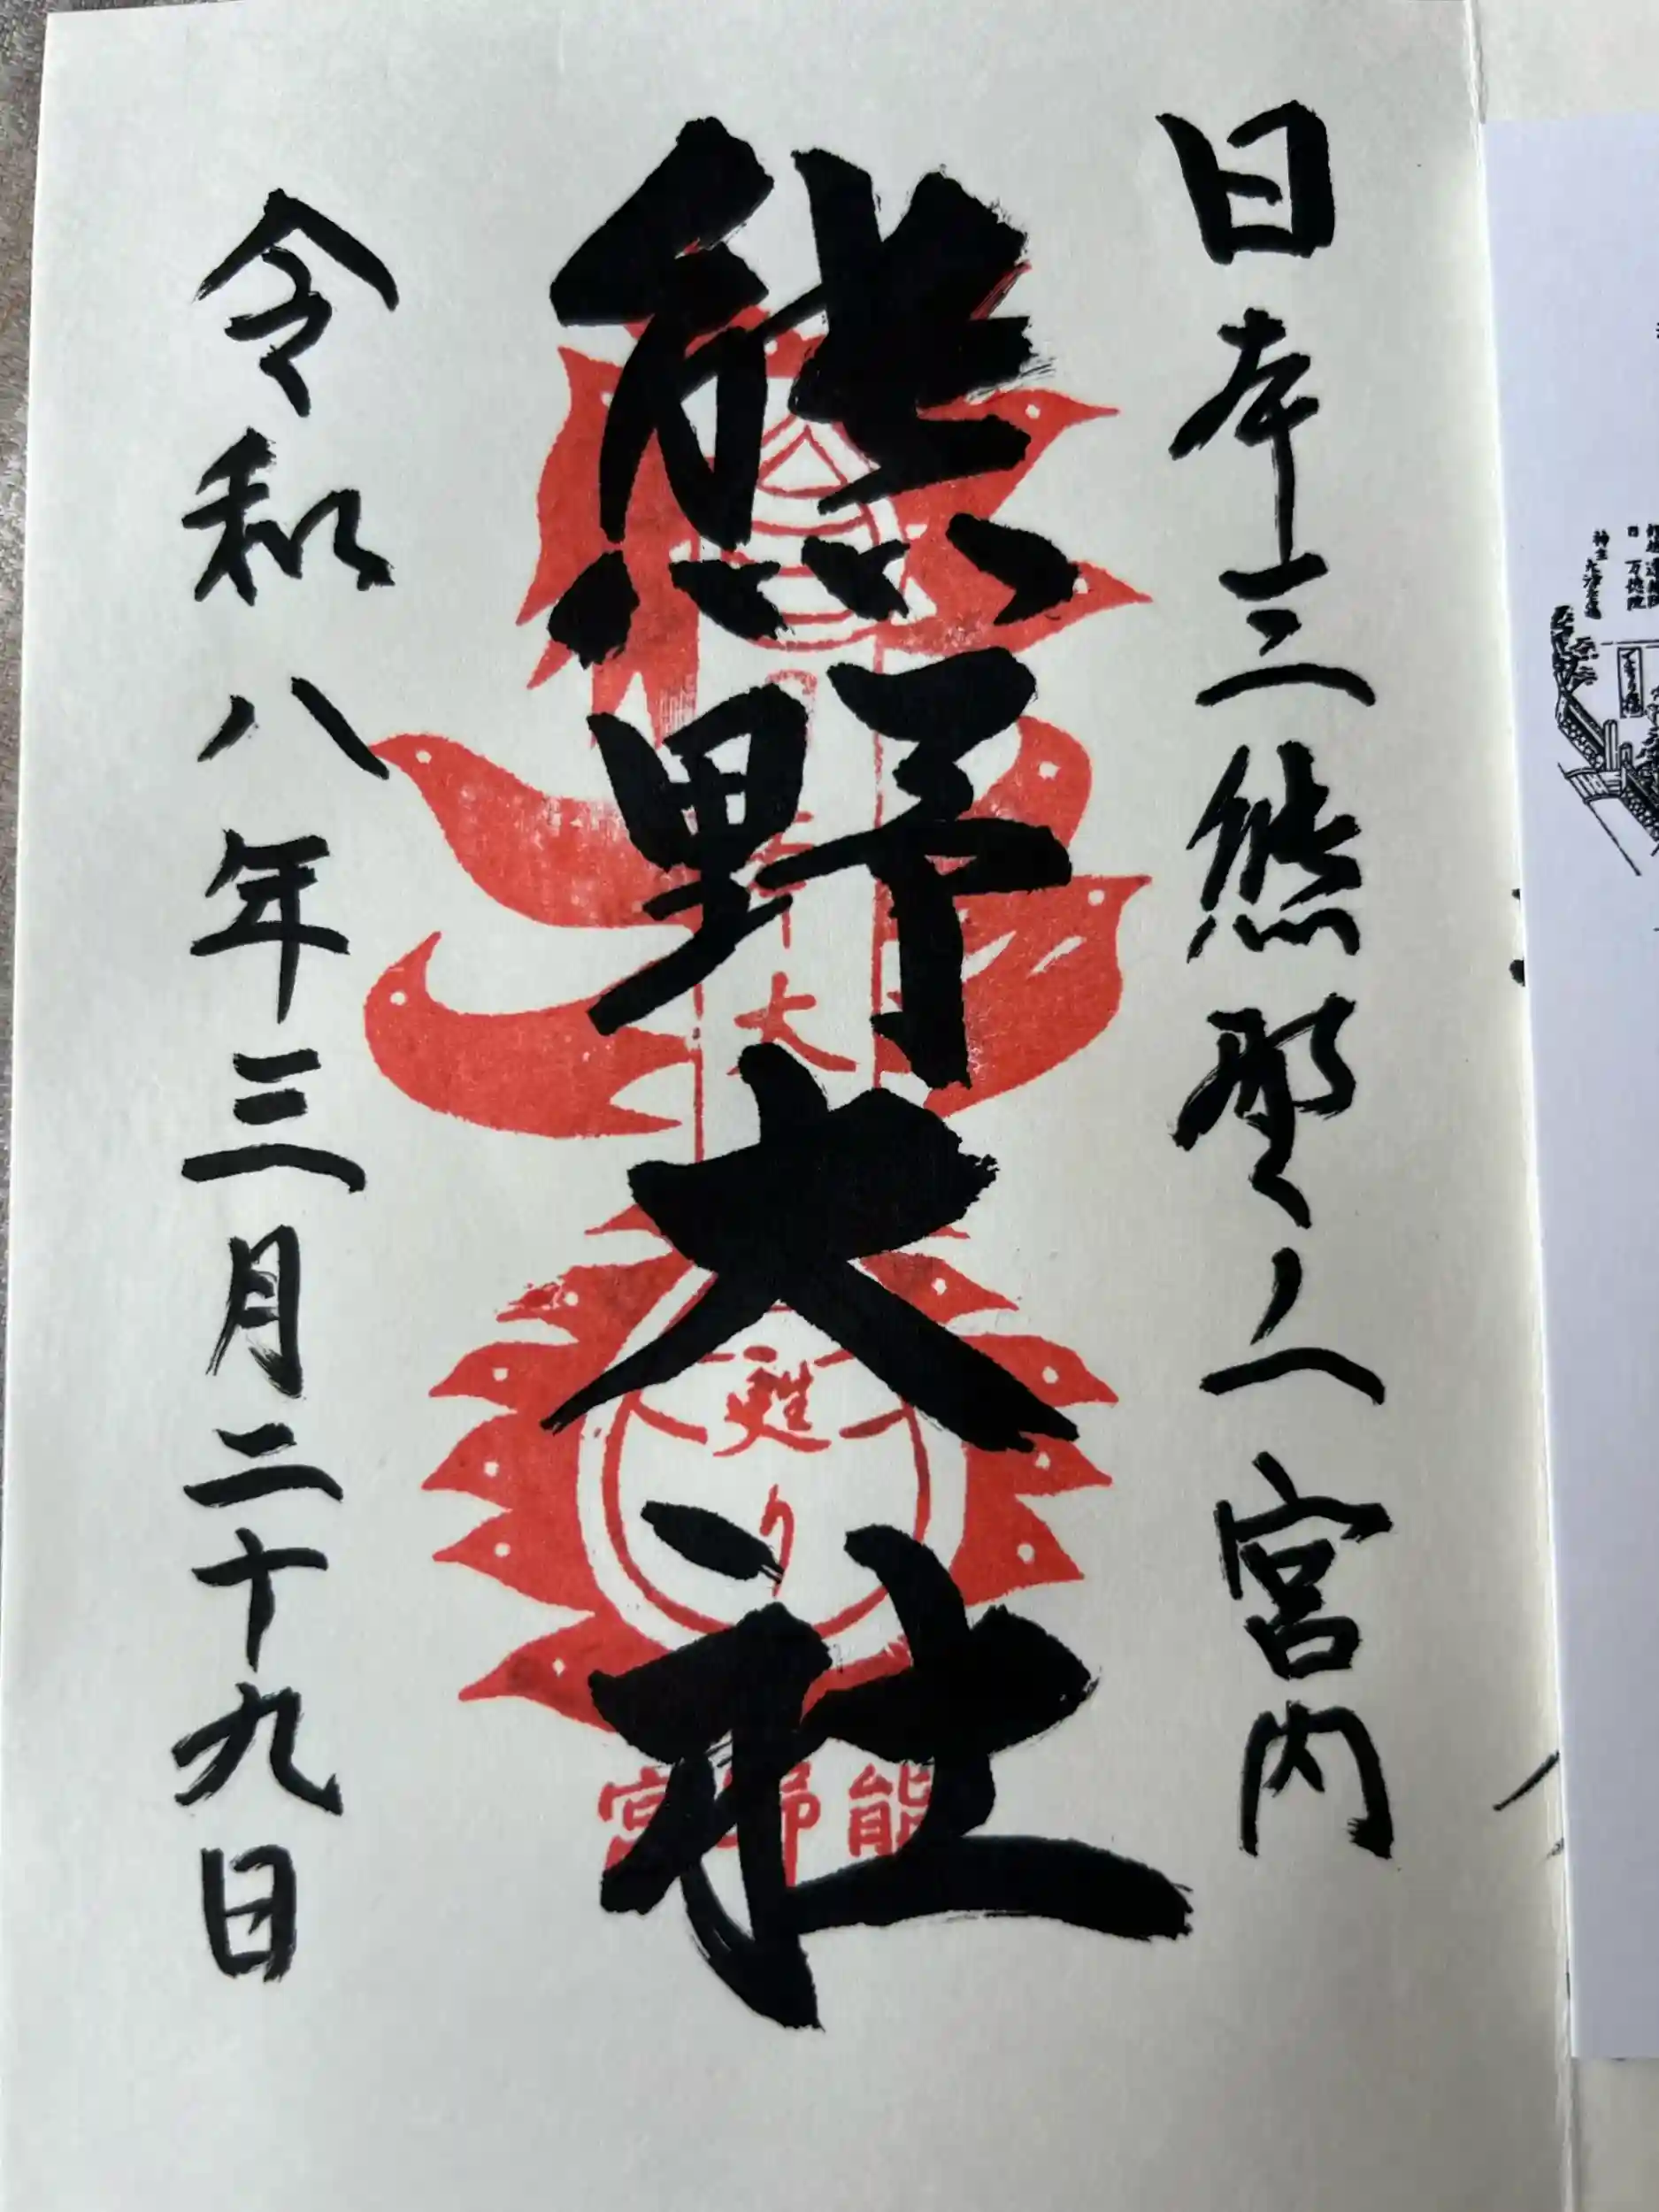 日本三熊野之一宮内
熊野大社
令和八年三月二十九日
大
甦り